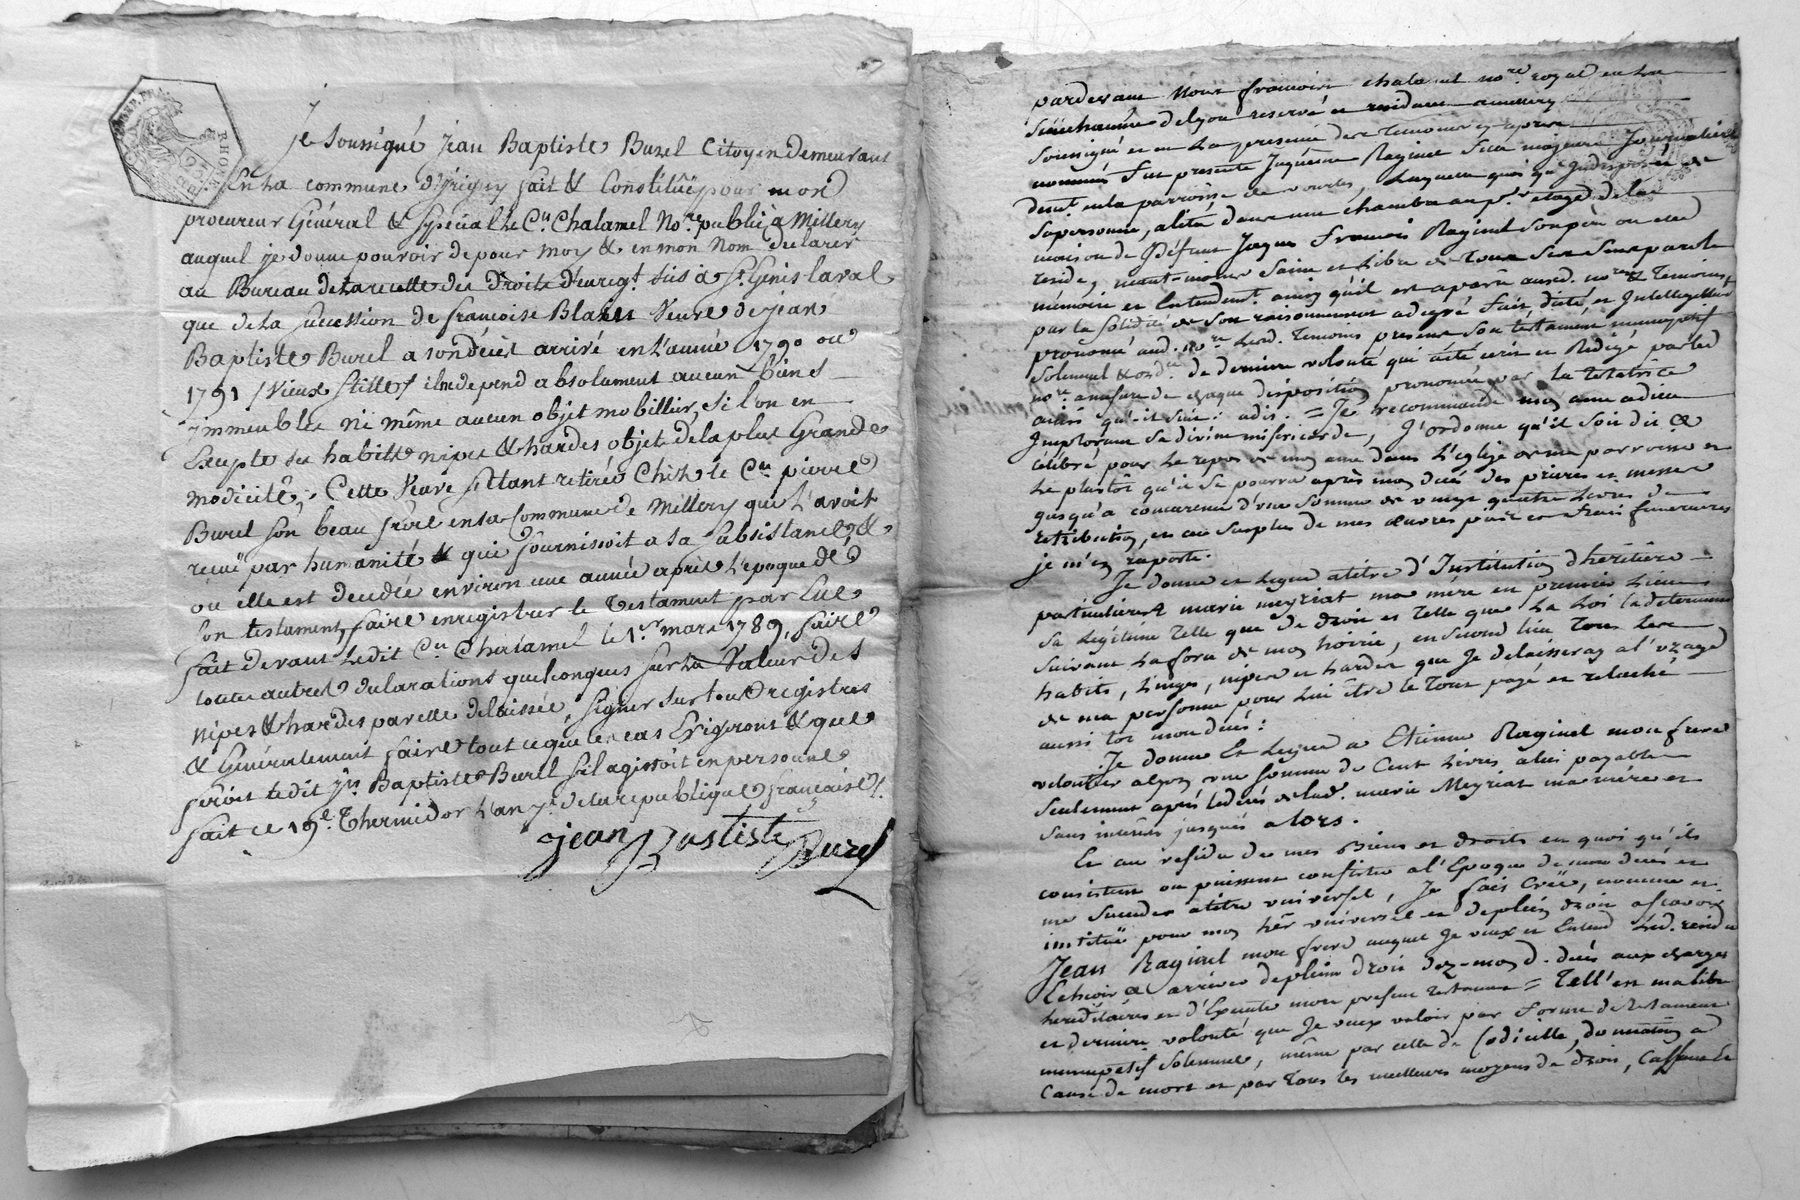 RÉP. FRA.
RHONE
Je soussigné jean Baptiste Burel Citoyen demeurant
En La commune d'jrigny fait & Constitüe pour mon
procureur Général & spécial le Cn. Chalamel No.re public à Millery
auquel je donne pouvoir de pour moy & en mon Nom declarer
au Bureau de la recette des Droits d'enregt. sis à St. Genis laval
que de la succession de francoise Blazin Veuve de jean
Baptiste Burel a son décés arrivé en l'année 1790 ou
1791 (Vieux Stille) il ne depend absolument aucun biens
immeubles ni même aucun objet mobillier, si l'on en
Excepte ses habits nipes & hardes objet de la plus Grande
modicité, Cette Veuve s'étant retirée Chéz le Cn. pierre
Burel son beau frère en la Commune de Millery qui l'avoit
reçuë par humanité & qui fournissoit a sa subsistance, &
ou elle est decedée environ une année après l'epoque de
son testament, faire enregistrer le Testament par Elle
fait devant Ledit Cn. Chalamel le 1.er mars 1789, faire
toutes autres declarations quelconques sur La Valeur des
nipes & hardes par elle delaissée, signer sur tous registres
& Généralement faire tout ce que le cas Exigerons & que
feroit ledit jn. Baptiste Burel s'il agissoit en personne
fait ce 19e. Thermidor L'an 7e. de la republique française
jean Bastiste Burel
pardevant Nous francois chalamel no.re royal en La
Sénéchaussée de lyon reservé et residant a millery
Soussigné et en La presence des Temoins cy après
nommés fut presente Jaquême Raginel fille majeure Journalière
demt. en la parroisse de vourles, Laquelle quoi qu'Indisposée de
sa personne, alitée dans une chambre au pr. etage de la
maison de Défunt Jaques francois Raginel son père ou elle
reside, neant-moins saine et Libre de tous ses sens parole
mémoire et Entendemt. ainsy qu'il est aparu aud. no.re & Temoins,
par la solidité de son raisonnement a de gré fait, dicté et Intelligiblemt.
prononcé aud. no.re & aud. Temoins present son testament nuncupatif
Solemnel & ord.re de derniere volonté qui a été ecrit et Rédigé par led
no.re a mesure de chaque disposition prononcée par la Testatrice
ainsi qu'il suit: a dit. = Je recommande mon ame a dieu
Implorant sa divine misericorde, J'ordonne qu'il soit dit &
célébré pour Le repos de mon ame dans L'eglise de ma parroisse et
Le plustôt qu'il se pourra après mon décés des prieres et messes
jusqu'a concurence d'une somme de vingt quatre Livres de
retribution, et au surplus de mes œuvres pies et frais funeraires
je m'en raporte.
Je donne et Legue a titre d'Institution d'héritière
particuliere a marie meyriat ma mère en premier Lieu
sa Légitime telle que de droit et telle que La Loi la determine
suivant La force de mon hoirie, en second lieu Tous Les
habits, Linges, nipes et hardes que Je delaisseray a l'uzage
de ma personne pour Lui être le tout payé et relaché
aussi tot mon décés:
Je donne Et Legue a Etienne Raginel mon frere
veloutier a lyon une somme de Cent Livres a lui payable
seulement après le décés de lad. marie Meyriat ma mère et
sans interêts jusques alors.
Et au residu de mes Biens et droits en quoi qu'ils
consistent ou puissent consister a l'Epoque de mon decés et
me succeder a titre universel, Je fais Créé, nomme et
institué pour mon hér. universel et de plein droit ascavoir
Jean Raginel mon frere auquel Je veux et Entend Led. residu
Echoir & arriver de plein droit dez-mond. décés aux charges
héréditaires et d'Executer mon present testament = Tell'est ma libre
et derniere volonté que Je veux valoir par forme de testament
nuncupatif solemnel, même par celle de Codicille, donnation a
Cause de mort et par tous les meilleurs moyens de droit, Cassant Et